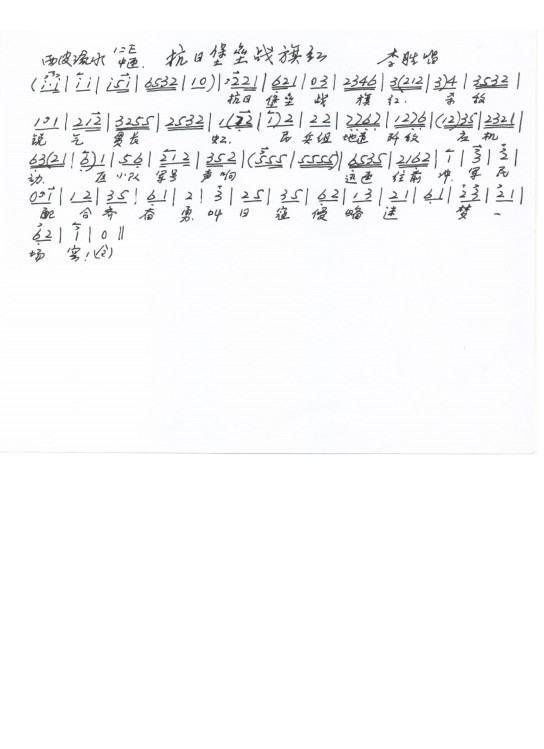 西皮流水 1=E 中速 抗日堡垒战旗红 李胜唱
(i i | i i | i 5 i | 6532 | 1 0) | 2221 | 621 | 03 | 2346 | 3(212 | 3)4 | 3532 |
抗日 堡垒 战 旗 红. 杀敌
1·1 | 212 | 3255 | 2532 | 1(22 | 1)2 | 22 | 7767 | 1276 | (12)35 | 2321 |
锐气 贯长 虹. 民 兵组 地道 歼敌 应机
63(21 | 6)1 | 56 | 212 | 352 | (555 | 5555) | 6535 | 2162 | 1 | 3 | 2 |
动. 区 小队 军号 声响 迅速 往前 冲. 军 民
0 1 | 12 | 35 | 61 | 2 | 3 | 25 | 35 | 62 | 13 | 21 | 61 | 23 | 21 |
配 合 齐 奋 勇. 叫 日 寇 侵 略 迷 梦 一
62 | 1 | 0 ‖
场 空!